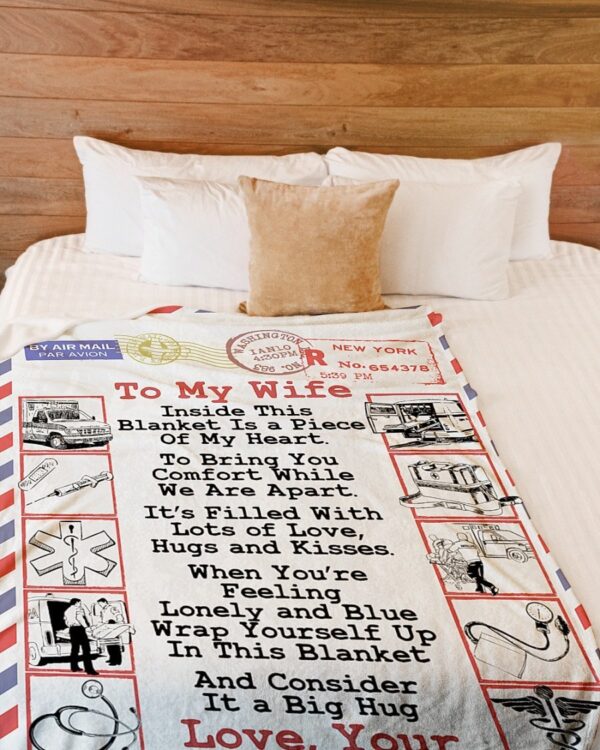 BY AIR MAIL
PAR AVION
WASHINGTON
4:30PM
R
NEW YORK
No: 654378
5:39 PM
To My Wife
Inside This
Blanket Is a Piece
Of My Heart.
To Bring You
Comfort While
We Are Apart.
It's Filled With
Lots of Love,
Hugs and Kisses.
When You're
Feeling
Lonely and Blue
Wrap Yourself Up
In This Blanket
And Consider
It a Big Hug
Love, Your